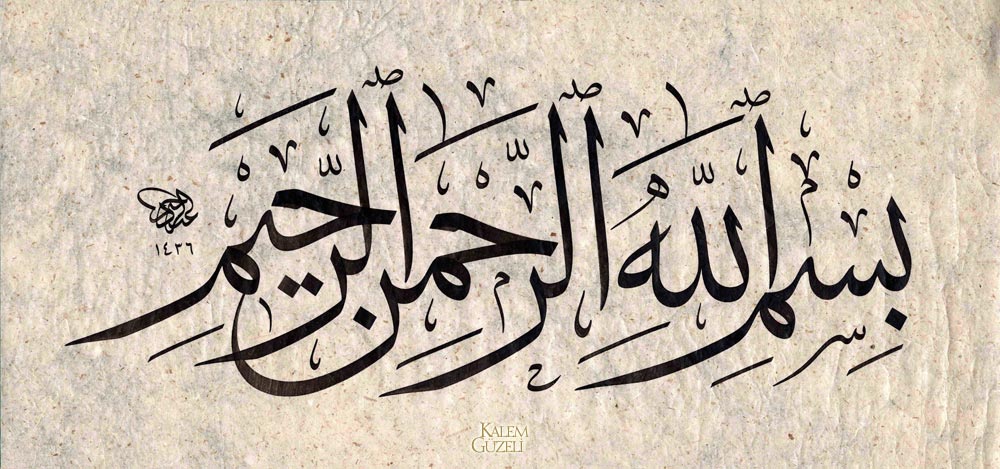 بِسْمِ اللّٰهِ الرَّحْمٰنِ الرَّحِيمِ
١٤٣٦
KALEM
GÜZELİ